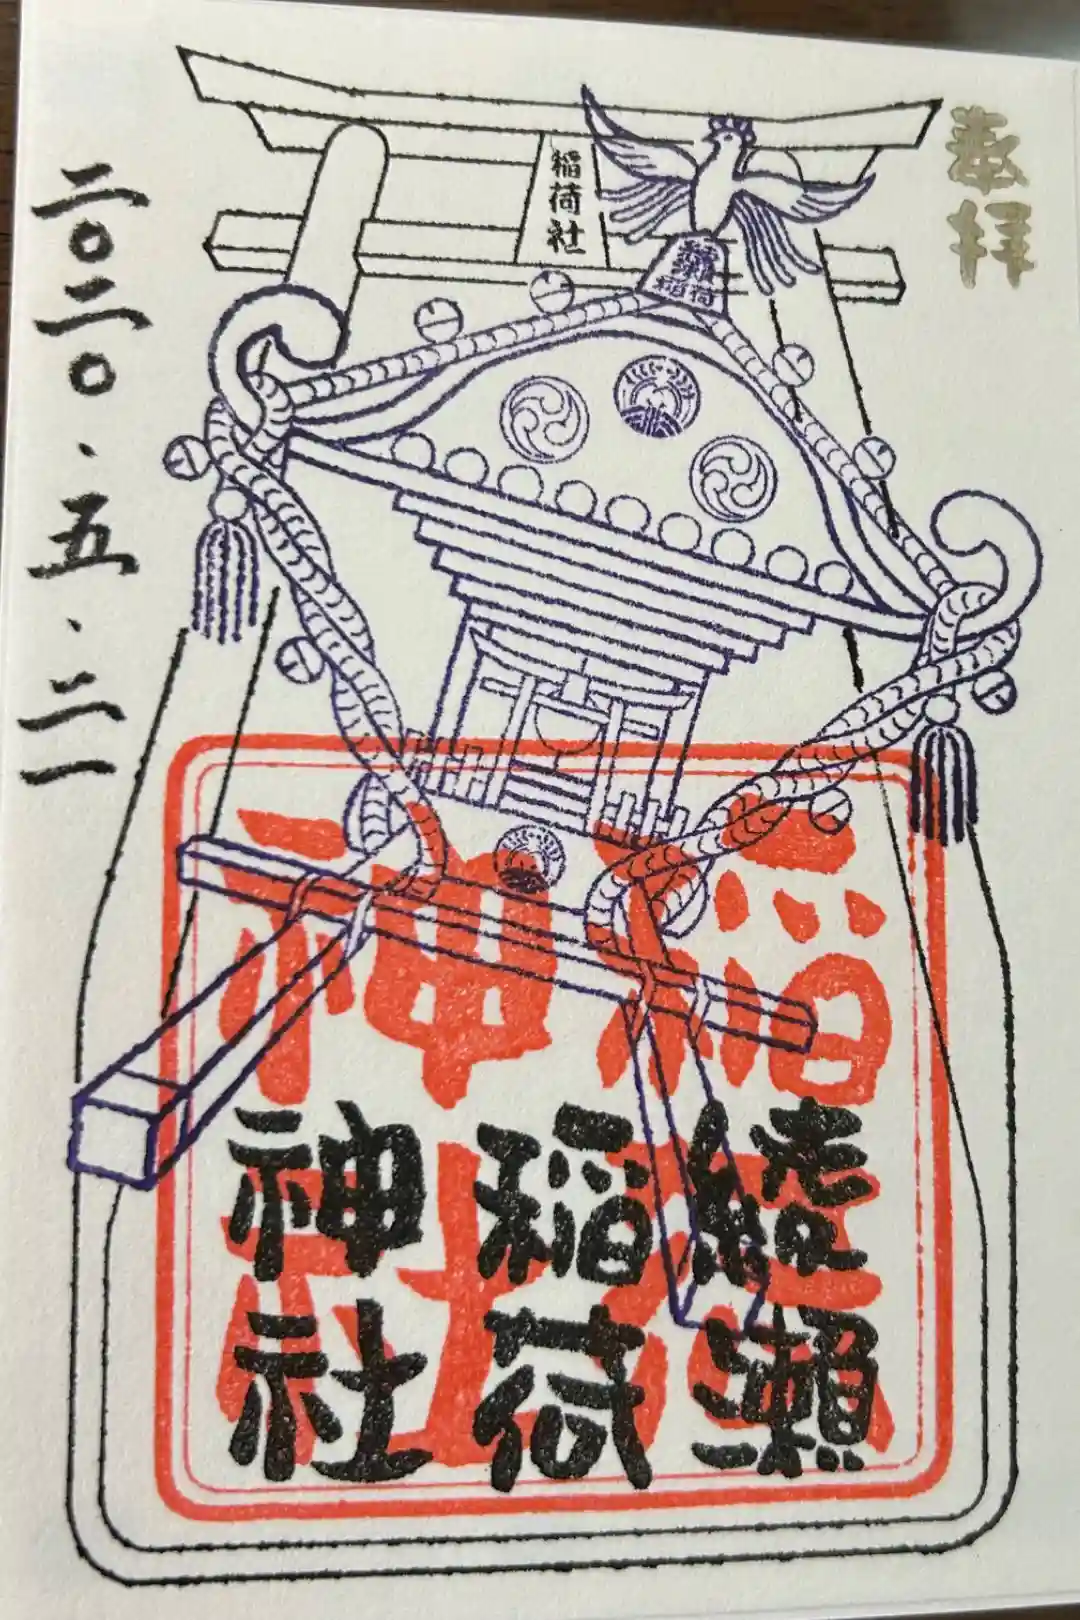 奉拝
稲荷社
綾瀬
稲荷
稲荷
神社
綾瀬
稲荷
神社
二〇二〇.五.二一